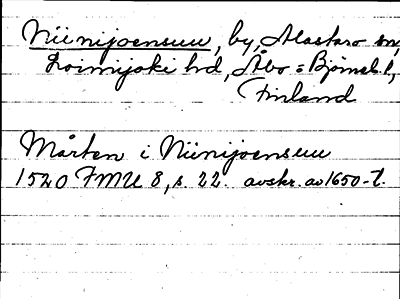 Niinijoensuu, by, Alastaro sn,
Loimijoki hd, Åbo = Björneb. l,
Finland
Mårten i Niinijoensuu
1520 FMU 8, s. 22. avskr. av 1650-t.